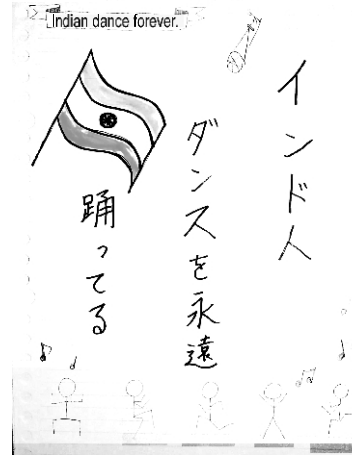 Indian dance forever.
インド人
ダンスを永遠
踊ってる